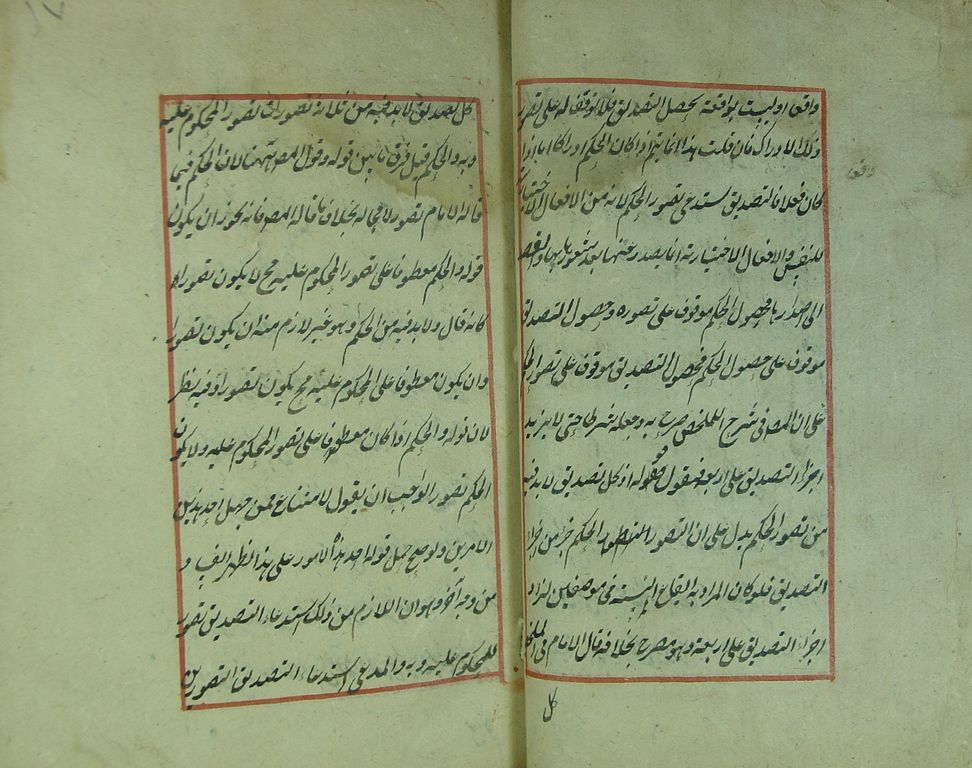 واقع او ليست بواقعة يحصل التصديق فلا توقف له على تصور
وذلك الادراك فان قلت هذا انما يتم اذا كان الحكم ادراكا اما اذا
كان فعلا فالتصديق يستدعى تصور الحكم لانه فعل من الافعال الاختيارية
للنفس والافعال الاختيارية انما يصدر عنها بعد شعورها بها والقصد
الى اصدارها فحصول الحكم موقوف على تصوره وحصول التصديق
موقوف على حصول الحكم فحصول التصديق موقوف على تصور الحكم
على ان المص فى شرح الملخص صرح به وجعله شرطا حتى لا يزيد
اجزاء التصديق على اربعة فنقول قوله اذ كل تصديق لا بد فيه
من تصور الحكم يدل على ان التصور الحكم جزء من اجزاء
التصديق فلو كان المراد به ايقاع النسبة فى موضعين لزاد
اجزاء التصديق على اربعة وهو مصرح بخلافه قال الامام فى الملخص
كل
واقع
كل تصديق لا بد فيه من ثلاثة تصورات تصور المحكوم عليه
وبه والحكم قيل فرق ما بين قوله وقول المص ههنا لان الحكم فيما
قاله الامام تصور لا محالة بخلاف ما قاله المص فانه يجوز ان يكون
قوله والحكم معطوفا على تصور المحكوم عليه فح لا يكون تصورا
كانه قال ولا بد فيه من الحكم وهو غير لازم منه ان يكون تصورا
وان يكون معطوفا على المحكوم عليه فح يكون تصورا وفيه نظر
لان قوله والحكم اذا كان معطوفا على تصور المحكوم عليه ولا يكون
الحكم تصورا لوجب ان يقول لامتناع ممن جهل احد هذين
الامرين ولو صح حمل قوله احد هذه الامور على هذا لظهر الفساد
من وجه آخر وهو ان اللازم من ذلك استدعاء التصديق تصور
المحكوم عليه وبه والمدعى استدعاء التصديق التصورين